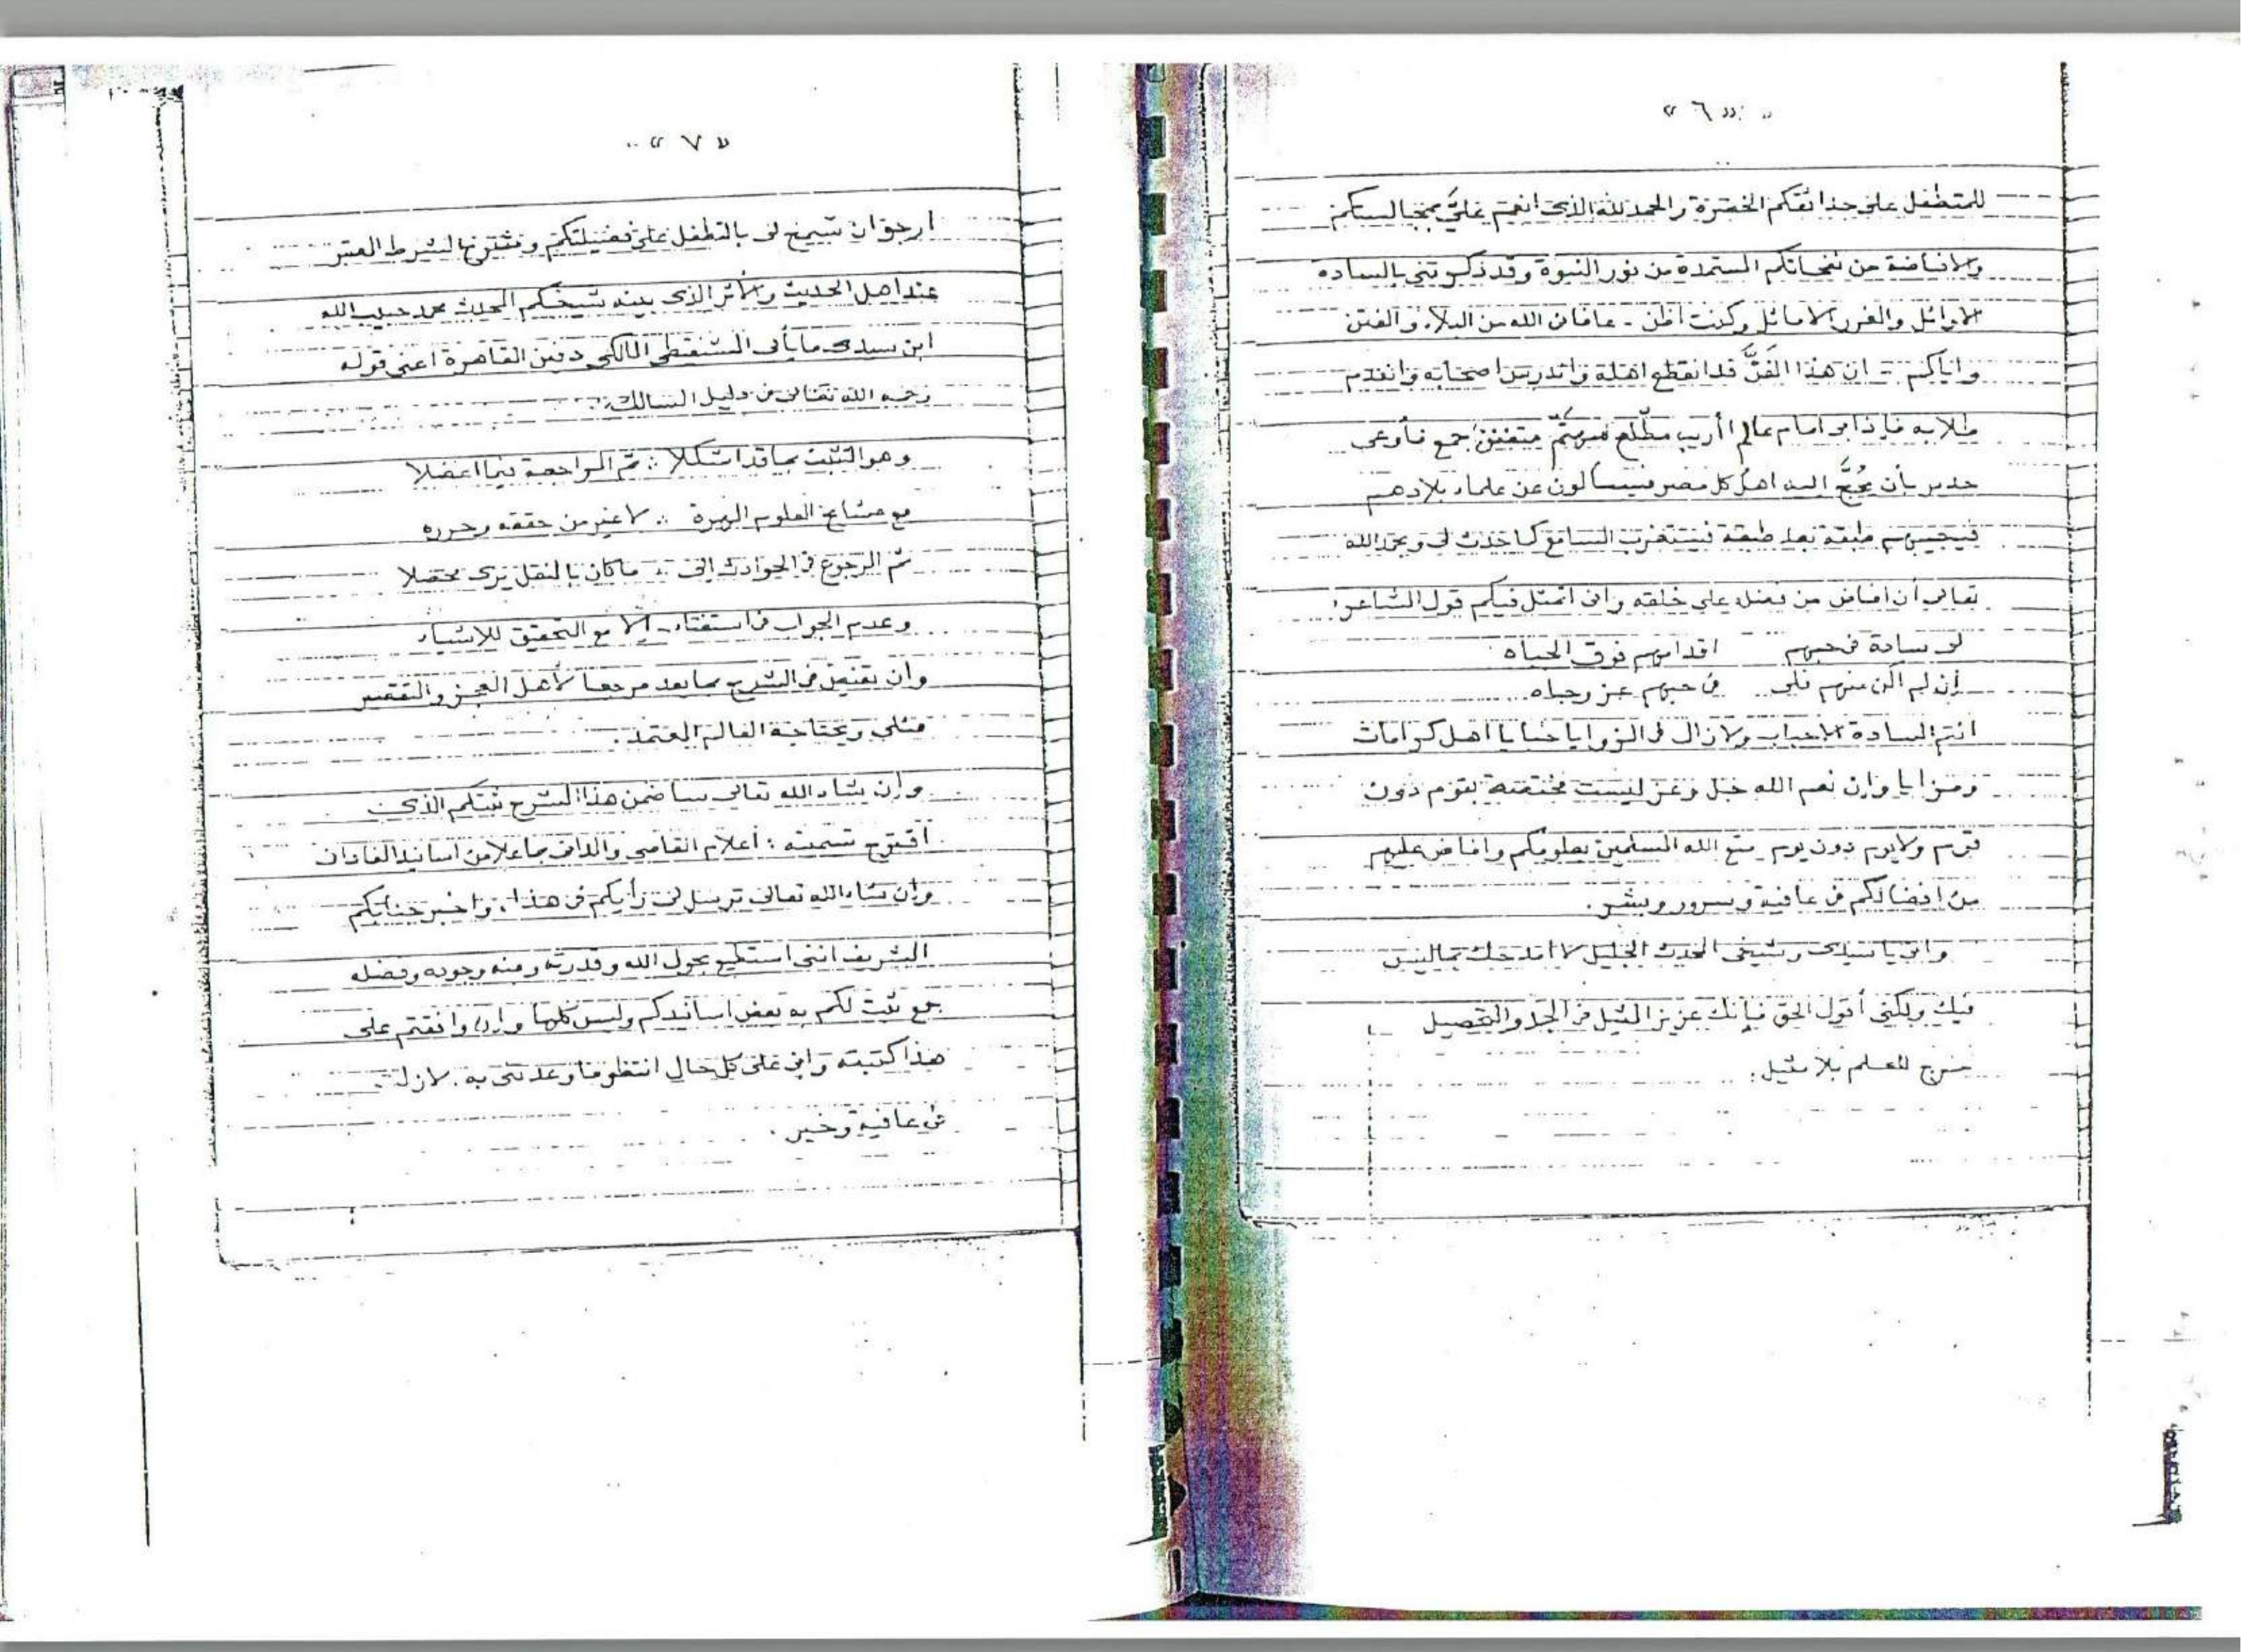 « ٦ »
للمتطفل على حدائقكم الخضرة والحمد لله الذي انعم عليَّ بمجالستكم
والافاضة من نفحاتكم المستمدة من نور النبوة وقد ذكرتني بالسادة
الاوائل والغرر الاماثل وكنت اظن - عافاني الله من البلاء والفتن
واياكم - ان هذا الفنَّ قد انقطع اهله واندرس اصحابه وانعدم
طلابه فإذا بي امام عالم أريب مطّلع متفنن جمع فأوعى
جدير بأن يحُجَّ اليه اهل كل مصر فيسألون عن علماء بلادهم
فيجيبهم طبقة بعد طبقة فيستغرب السامع كما حدث لي وبحمد الله
تعالى أن افاض من فضله على خلقه واني اتمثل فيكم قول الشاعر:
لي سادة في حبهم اقدامهم فوق الجباه
إن لم اكن منهم فلي في حبهم عز وجاه
انتم السادة الاحباب ولازال في الزوايا خبايا يا اهل كرامات
ومزايا وإن نعم الله جل وعز ليست مختصة بقوم دون
قوم ولا يوم دون يوم متع الله المسلمين بعلومكم وافاض عليهم
من افضالكم في عافية وسرور وبشر.
واني يا سيدي وشيخي المحدث الجليل لا امدحك بما ليس
فيك ولكني أقول الحق فإنك عزيز المثيل في الجد والتحصيل
للعلم بلا مثيل.
« ٧ »
ارجو ان تسمح لي بالتطفل على فضيلتكم ونقترح الشرط المعتبر
عند اهل الحديث والأثر الذي بينه شيخكم المحدث محمد حبيب الله
ابن سيدي مايأبى الشنقيطي المالكي دفين القاهرة اعني قوله
رحمه الله تعالى في دليل السالك:
وهو التثبت بما قد اشكلا ∴ ثم المراجعة فيما اعضلا
مع مشايخ العلوم المهرة ∴ لا غير من حققه وحرره
ثم الرجوع في الحوادث الى ∴ ما كان بالنقل يرى محصلا
وعدم الجواب في استفتاء إلا مع التحقيق للاشياء
وان تفيض في الشرح بما يعد مرجعا لأهل العجز والتقصير
مثلي ويحتاجه العالم المعتمد.
وإن شاء الله تعالى سأضمن هذا الشرح ثبتكم الذي
اقترح تسميته: أعلام القاصي والداني بما علا من اسانيد الفاداني
وإن شاء الله تعالى ترسل لي رأيكم في هذا، واخبر جنابكم
الشريف انني استطيع بحول الله وقدرته ومنه وجوده وفضله
جمع ثبت لكم به بعض اسانيدكم وليس كلها وإن وافقتم على
هذا كتبته واني على كل حال انتظر ما وعدتني به. لازلت
في عافية وخير.